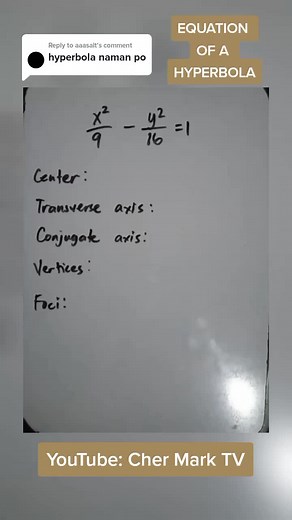 Reply to aaasalt's comment
hyperbola naman po
EQUATION
OF A
HYPERBOLA
x²/9 − y²/16 = 1
Center:
Transverse axis:
Conjugate axis:
Vertices:
Foci:
YouTube: Cher Mark TV